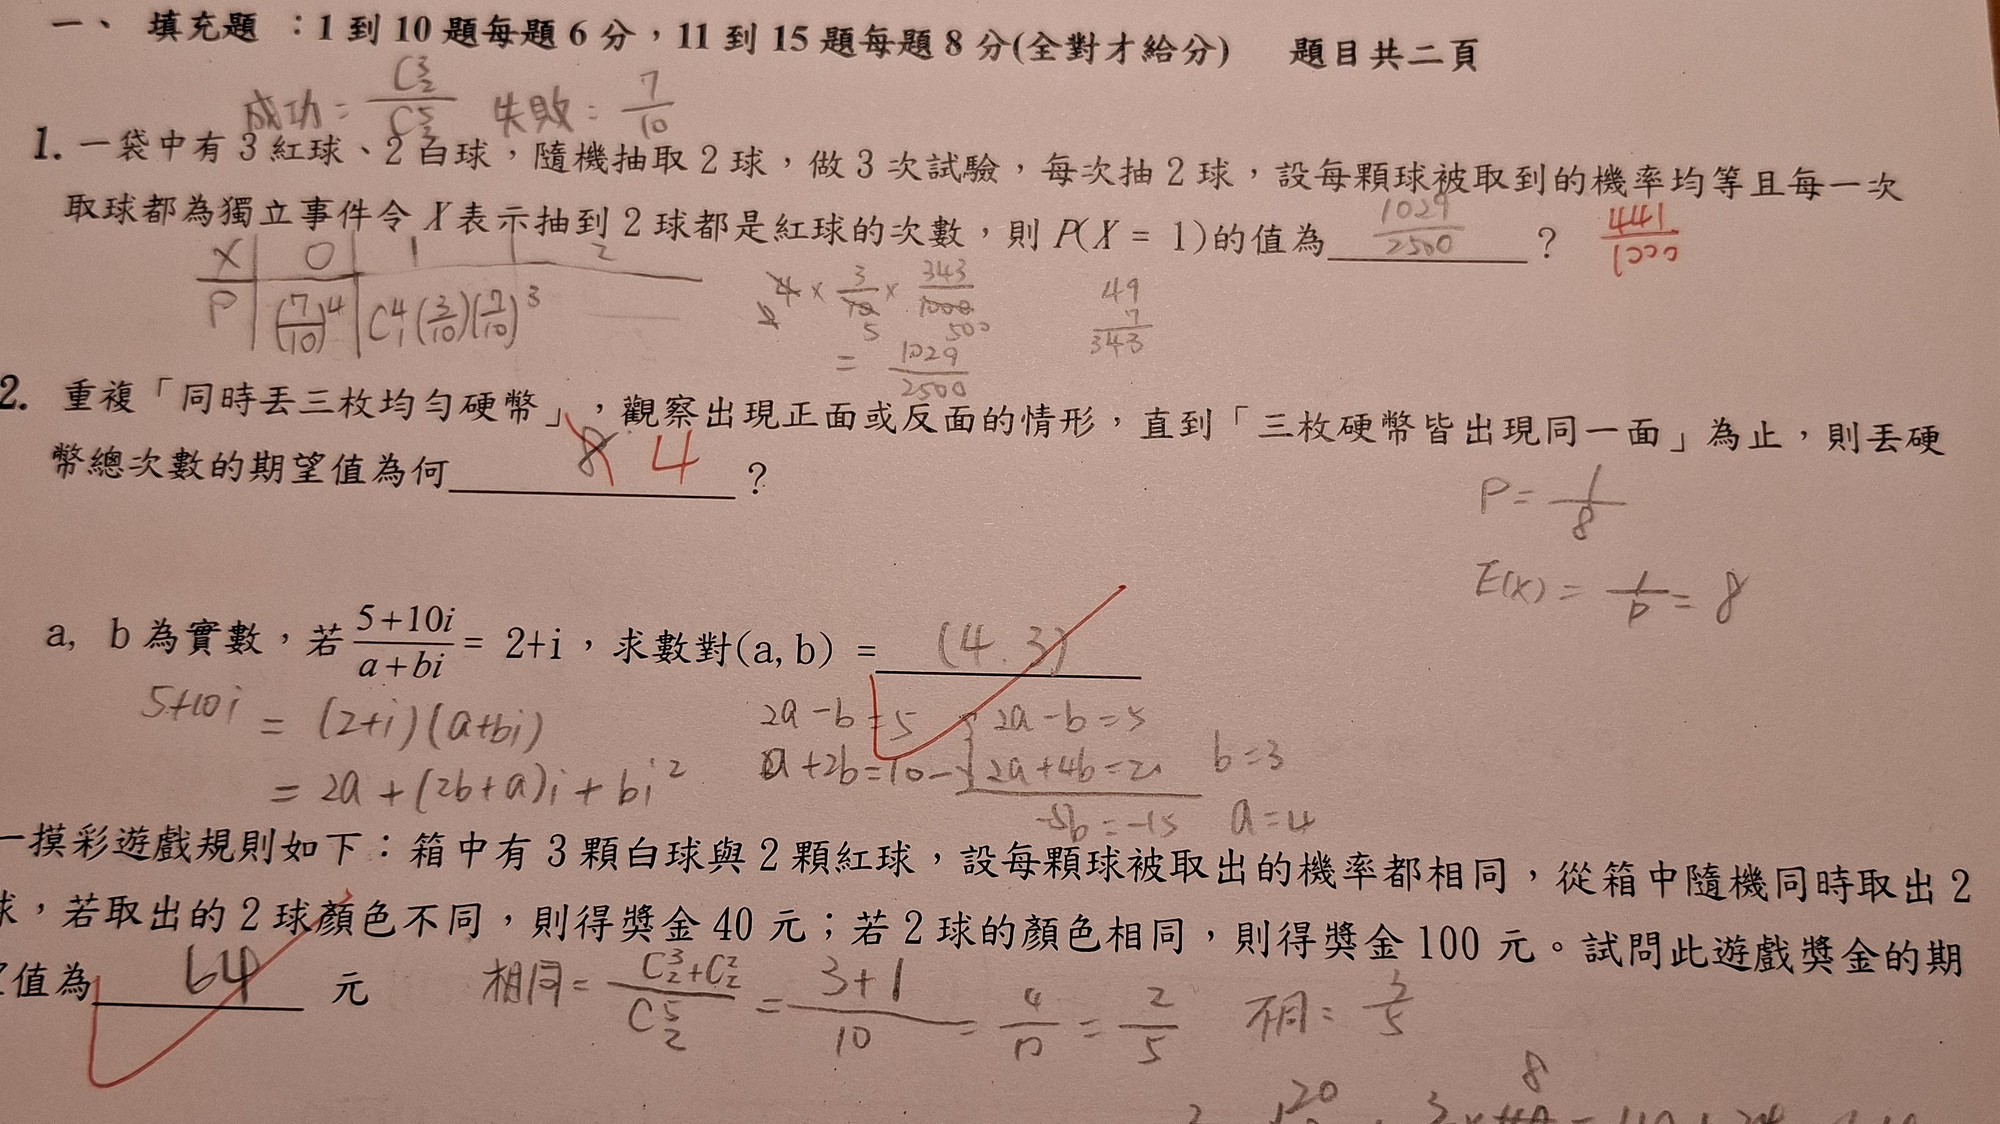 一、 填充題 ：1到10題每題6分，11到15題每題8分(全對才給分) 題目共二頁
成功 = C³₂/C⁵₂ 失敗 = 7/10
1. 一袋中有3紅球、2白球，隨機抽取2球，做3次試驗，每次抽2球，設每顆球被取到的機率均等且每一次
取球都為獨立事件令X表示抽到2球都是紅球的次數，則P(X = 1)的值為 1029/2500 ？ 441/1000
X 0 1 2
P (7/10)⁴ C⁴₁(3/10)(7/10)³
4 × 3/10 × 343/1000
5 500
= 1029/2500
49
7
343
2. 重複「同時丟三枚均勻硬幣」，觀察出現正面或反面的情形，直到「三枚硬幣皆出現同一面」為止，則丟硬
幣總次數的期望值為何 8 4 ？
P = 1/8
E(X) = 1/p = 8
a, b為實數，若 (5+10i)/(a+bi) = 2+i，求數對(a,b) = (4.3)
5+10i = (2+i)(a+bi)
= 2a+(2b+a)i+bi²
2a-b=5
a+2b=10
2a-b=5
2a+4b=20
-5b=-15
b=3
a=4
一摸彩遊戲規則如下：箱中有3顆白球與2顆紅球，設每顆球被取出的機率都相同，從箱中隨機同時取出2
球，若取出的2球顏色不同，則得獎金40元；若2球的顏色相同，則得獎金100元。試問此遊戲獎金的期
值為 64 元
相同 = (C³₂+C²₂)/C⁵₂ = (3+1)/10 = 4/10 = 2/5 不同 = 3/5
20 8